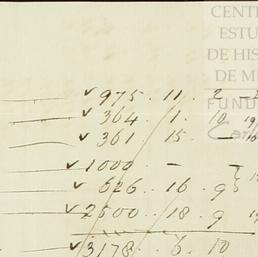 CENT
ESTU
DE HIS
DE M
FUND
✓ 975 . 11 . 2 -
✓ 364 / 1 . 10
✓ 361 / 15 . -
✓ 1000 - -
✓ 626 . 16 . 9
✓ 2500 . 18 . 9
✓ 3178 . 6 . 10